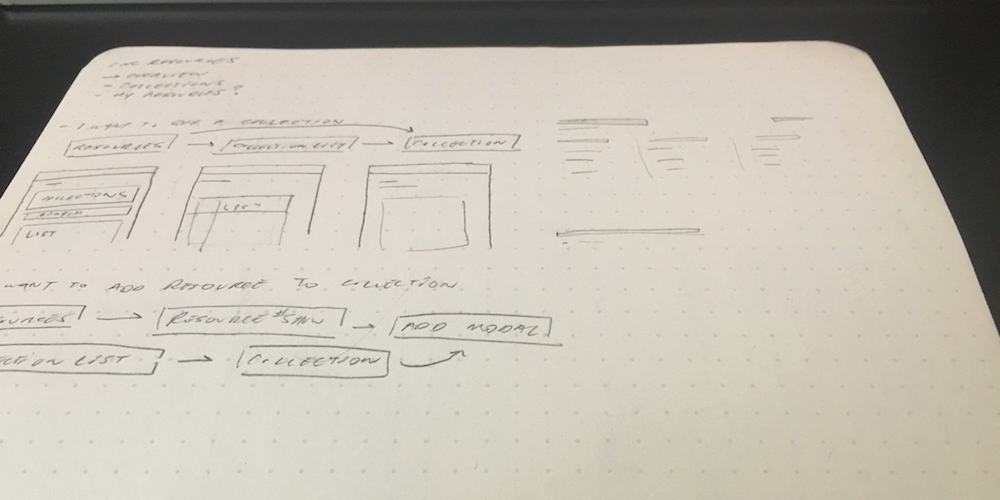 RESOURCES
→ OVERVIEW
- COLLECTIONS
- MY RESOURCES?
- I WANT TO SEE A COLLECTION
RESOURCES → COLLECTION LIST → COLLECTION
COLLECTIONS
SEARCH
LIST
LIST
WANT TO ADD RESOURCE TO COLLECTION
OURCES → RESOURCE #SHOW → ADD MODAL
CTION LIST → COLLECTION